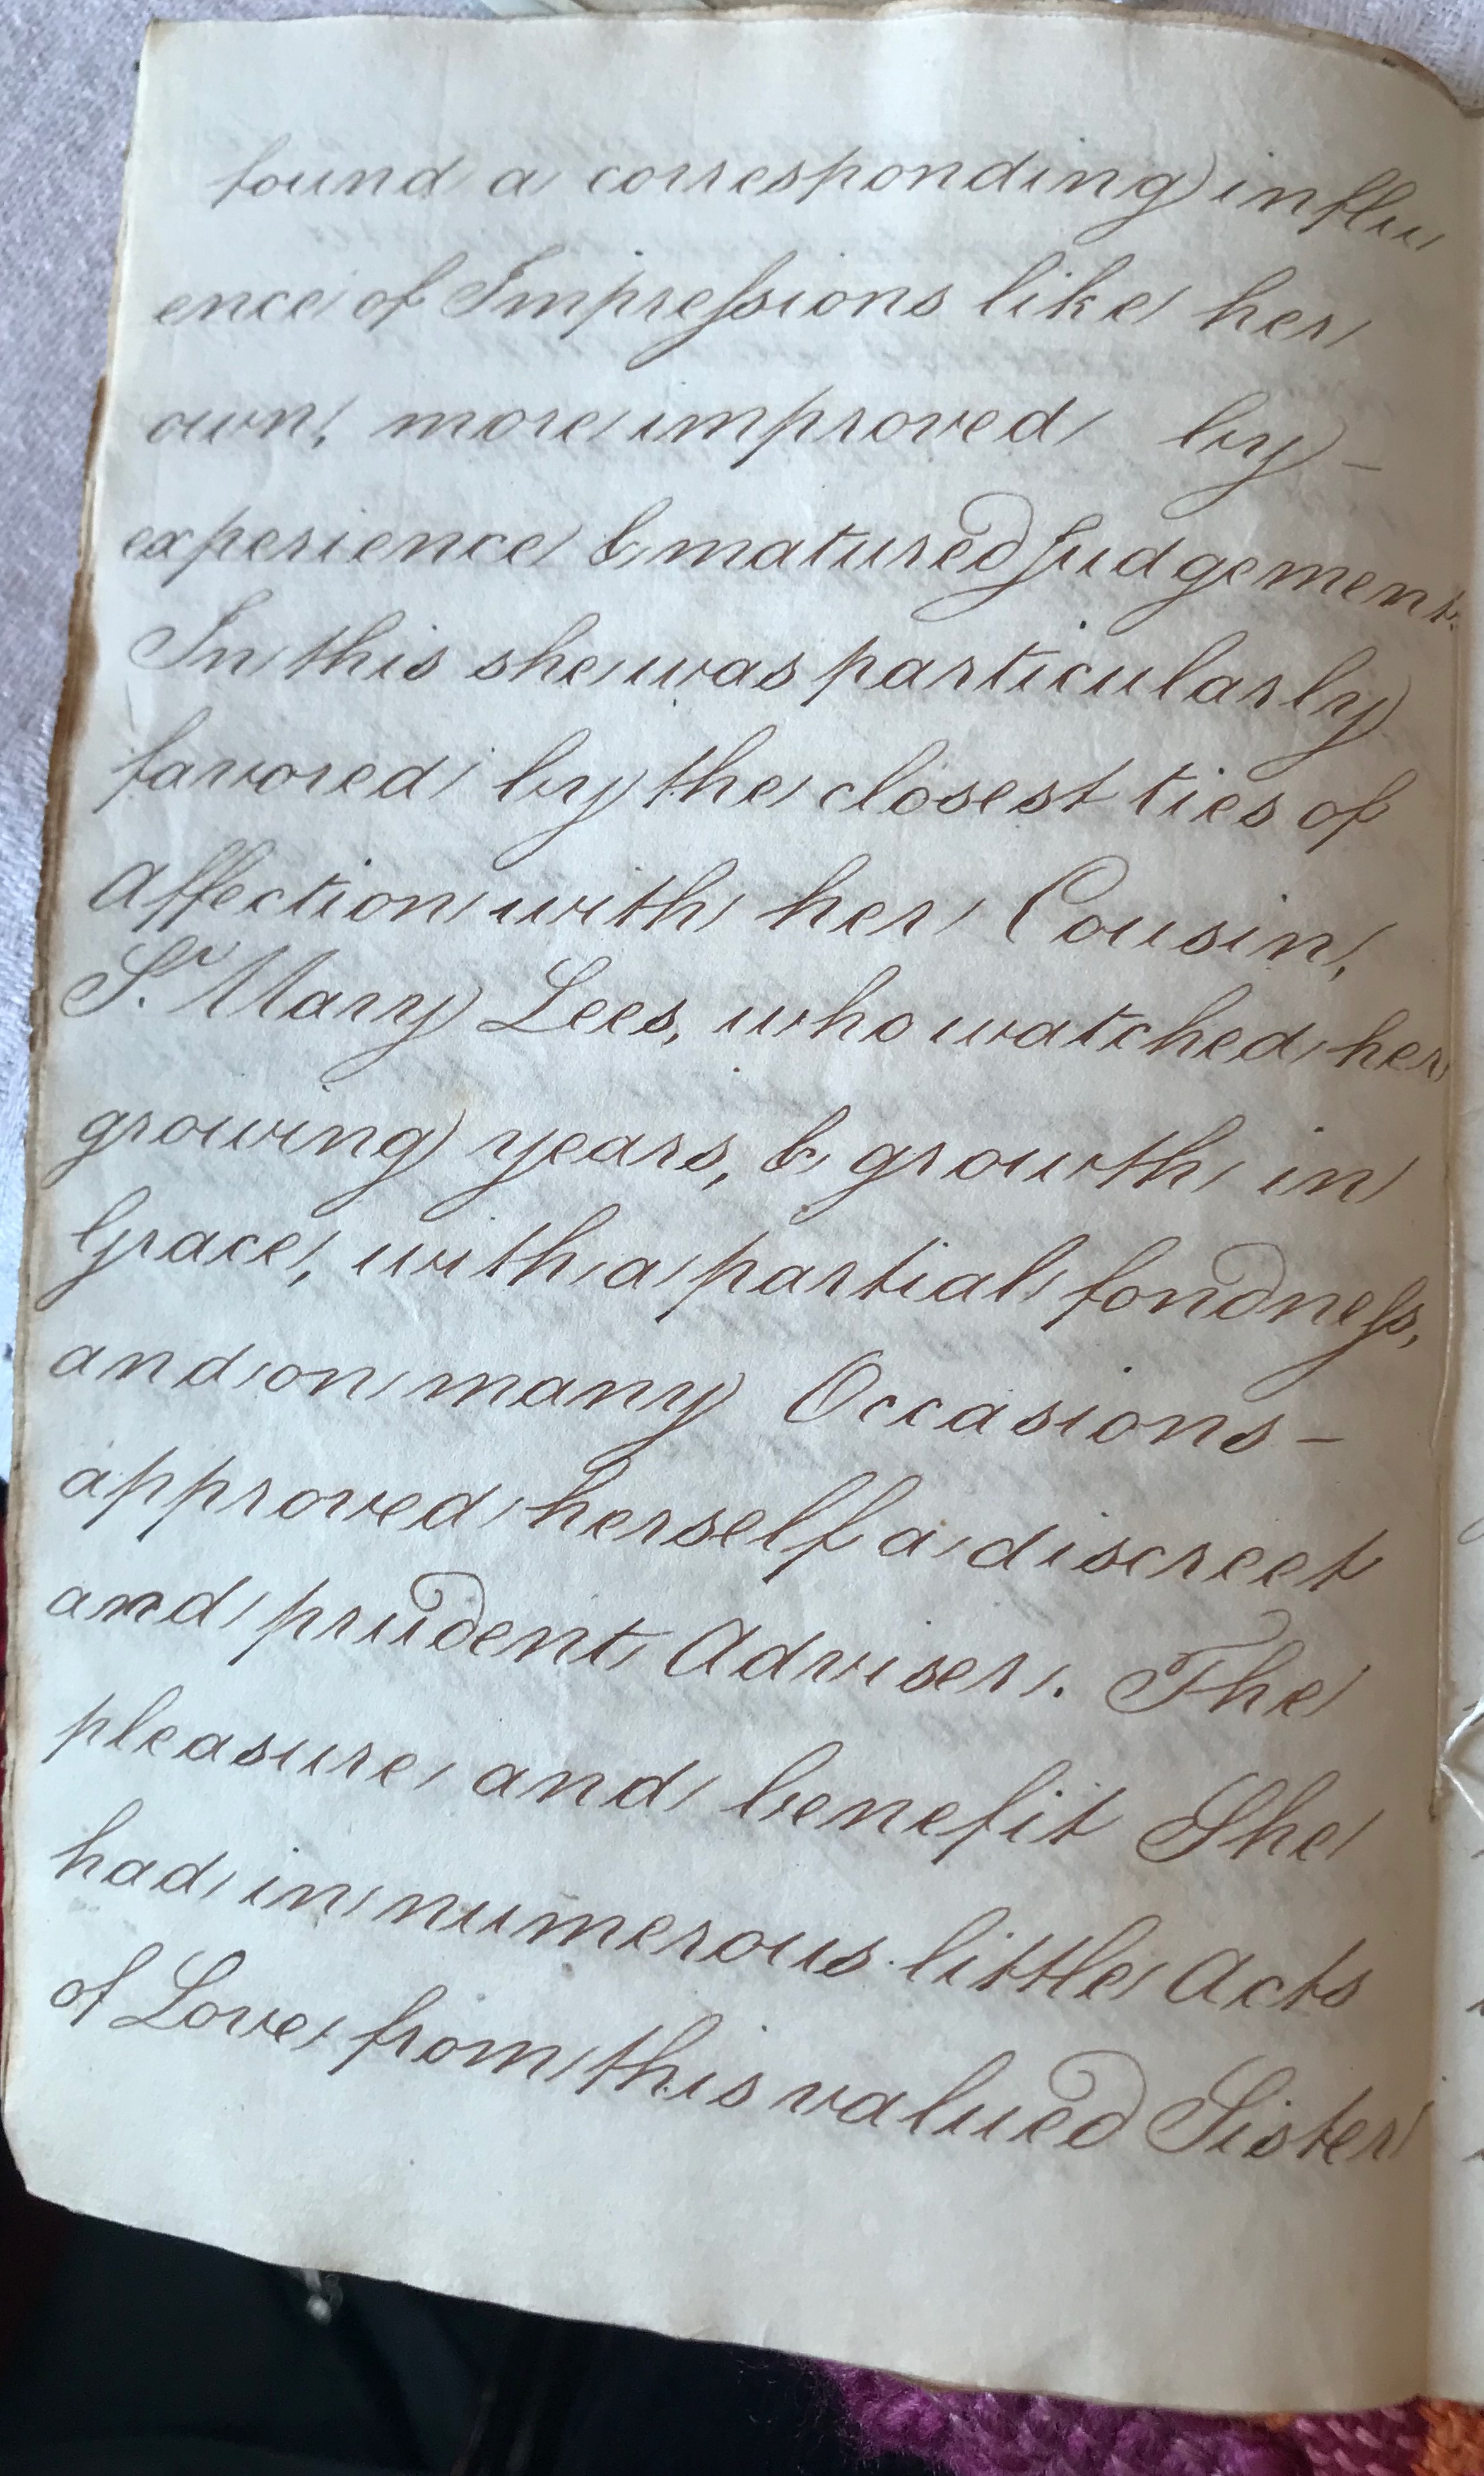 found a corresponding influ
ence of Impreſsions like her
own, more improved by –
experience & matured Judgement.
In this she was particularly
favored by the closest ties of
Affection with her Cousin,
Sr. Mary Lees, who watched her
growing years, & growth in
Grace, with a partial fondneſs,
and on many Occasions –
approved herself a discreet
and prudent Adviser. The
pleasure and benefit She
had in numerous little Acts
of Love from this valued Sister